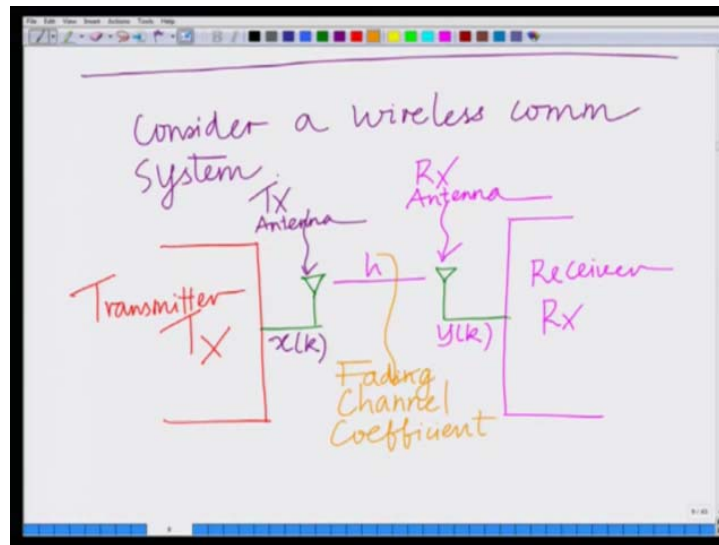 File Edit View Insert Actions Tools Help
Consider a wireless comm
System.
Tx
Antenna
Rx
Antenna
h
Transmitter
Tx
x(k)
y(k)
Receiver
Rx
Fading
Channel
Coefficient